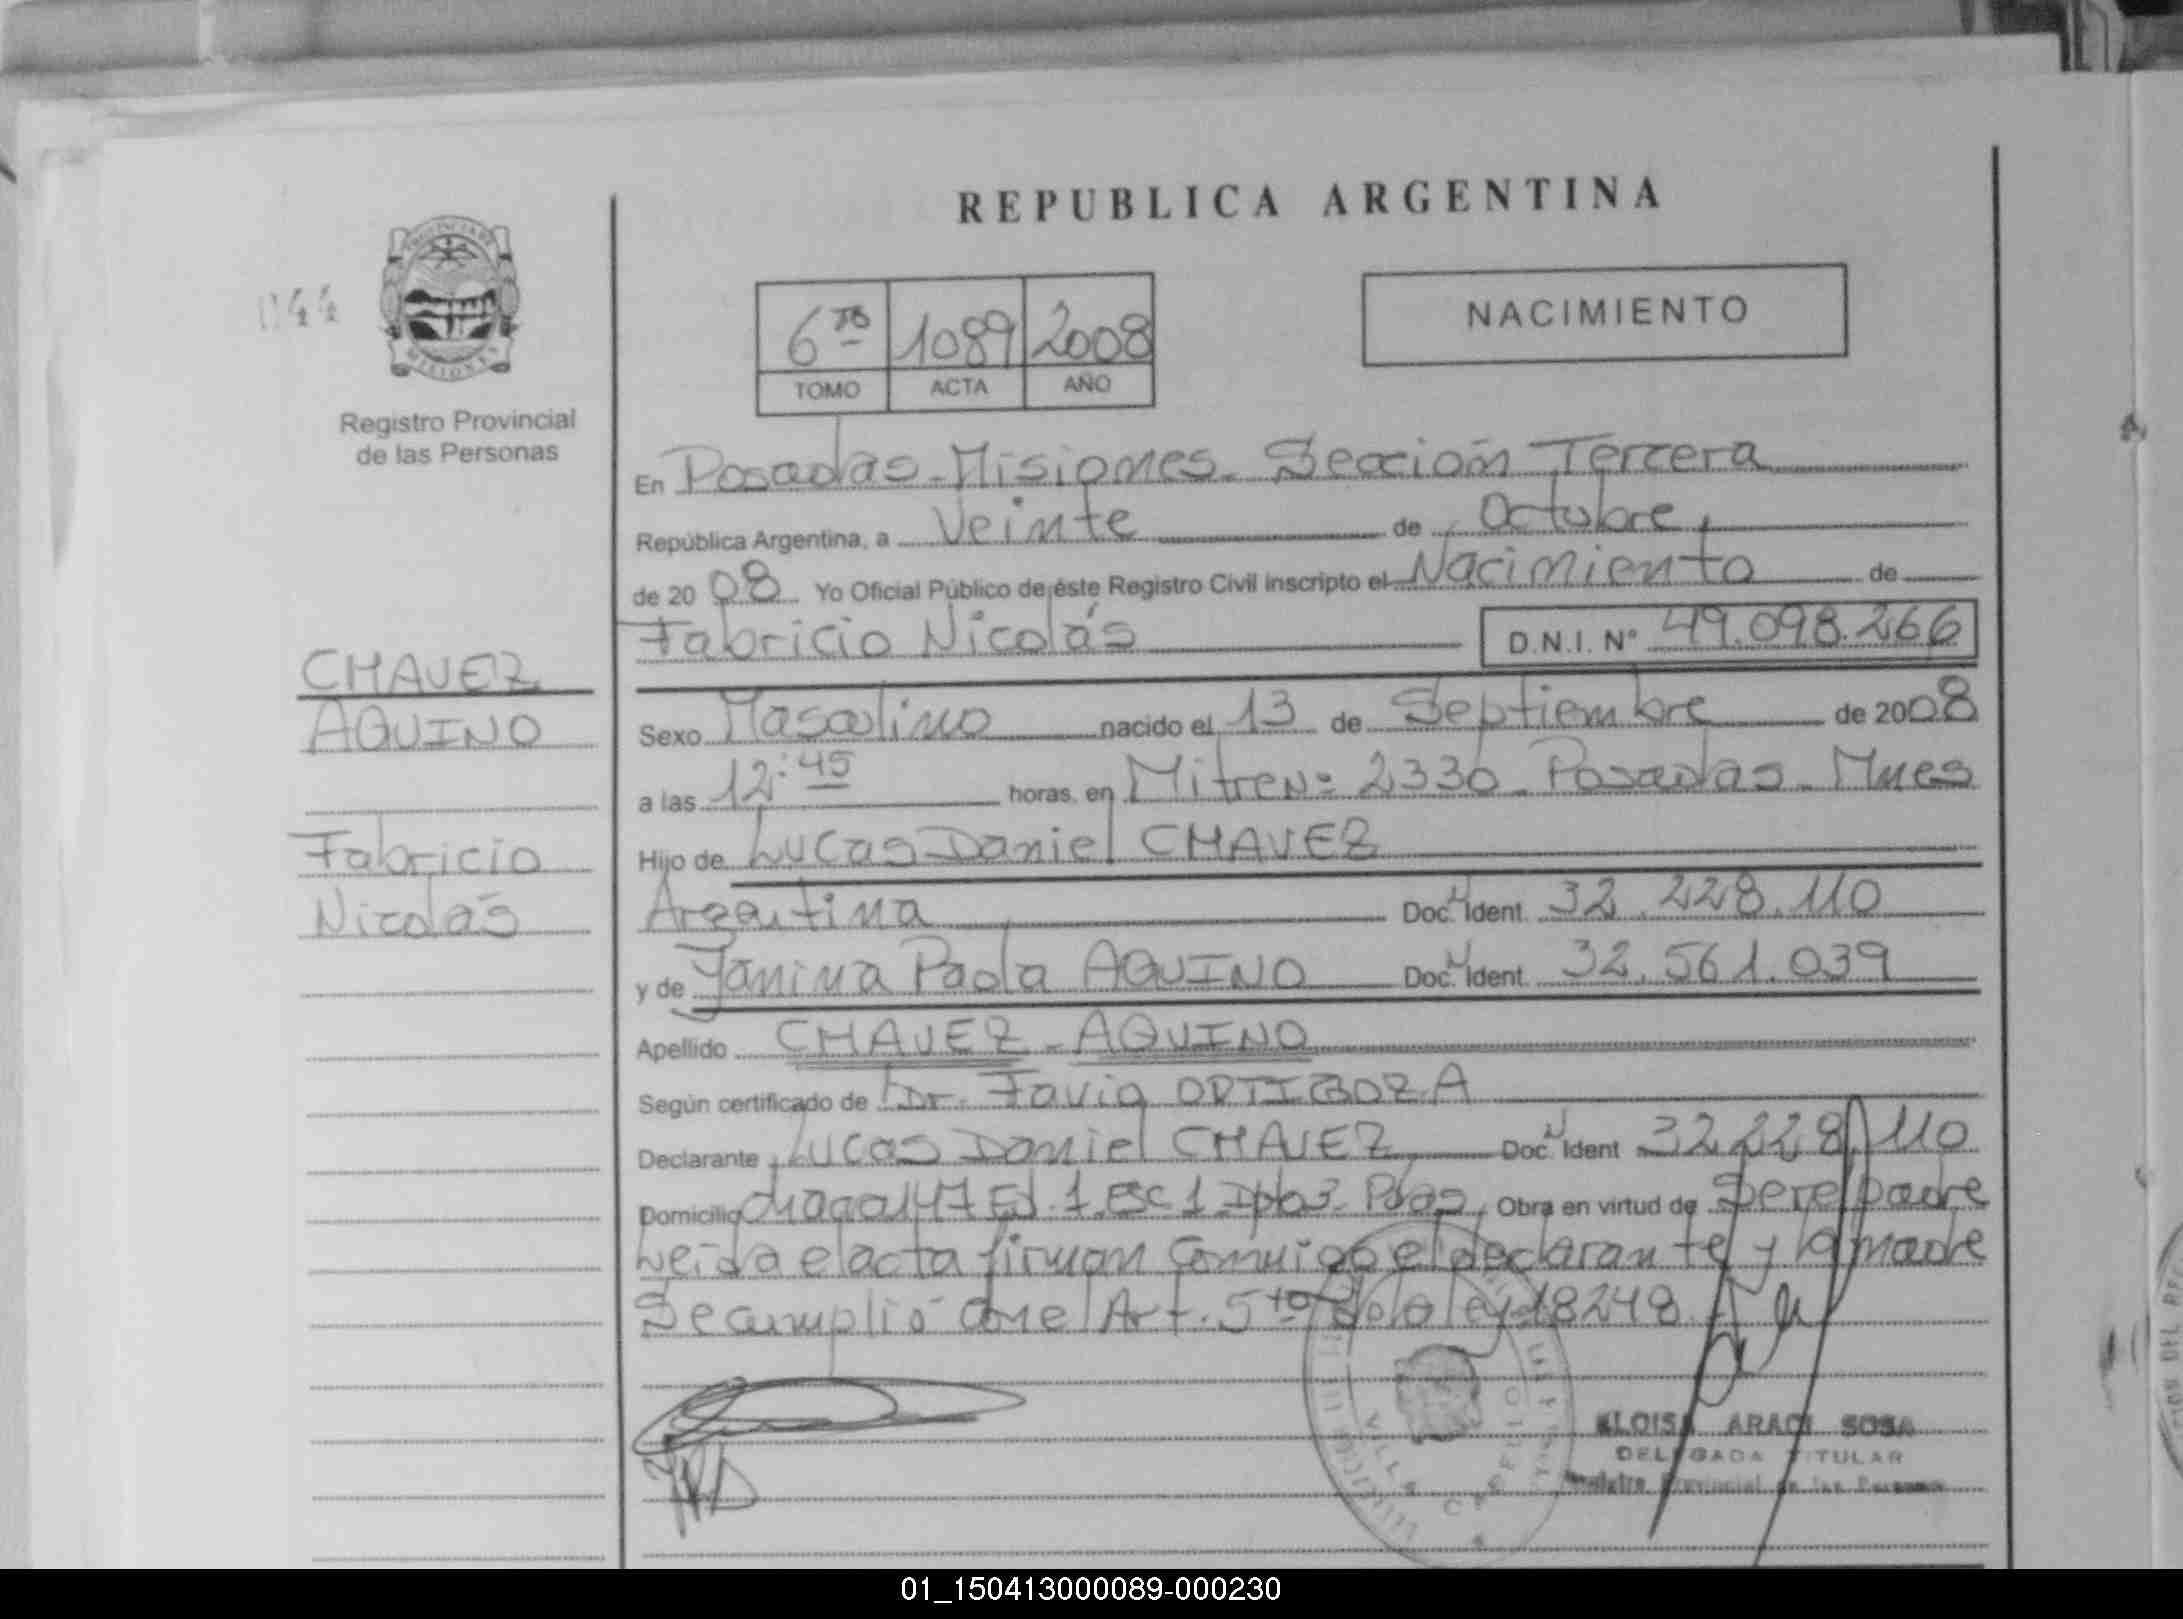 REPUBLICA ARGENTINA
044
PROVINCIA DE
MISIONES
Registro Provincial
de las Personas
NACIMIENTO
6to 1089 2008
TOMO ACTA AÑO
En Posadas-Misiones. Sección Tercera
República Argentina, a Veinte de Octubre,
de 2008 Yo Oficial Público de éste Registro Civil inscripto el Nacimiento de
Fabricio Nicolás D.N.I. Nº 49.098.266
CHAVEZ
AQUINO
Fabricio
Nicolás
Sexo Masculino nacido el 13 de Septiembre de 2008
a las 12:45 horas, en Mitre Nº 2330 - Posadas - Mnes
Hijo de Lucas Daniel CHAVEZ
Argentina Doc. Ident. 32.228.110
y de Yanina Paola AQUINO Doc. Ident. 32.561.039
Apellido CHAVEZ - AQUINO
Según certificado de Dr. Favio ORTIGOZA
Declarante Lucas Daniel CHAVEZ Doc. Ident 32.228.110
Domicilio 147 Ed. 1 Esc 1 Dpto 3 Pdas, Obra en virtud de Ser el padre
Leída el acta firman conmigo el declarante y la madre
Se cumplió con el Art. 5to de la ley 18248.
ELOISA ARACI SOSA
DELEGADA TITULAR
Registro Provincial de las Personas
01_150413000089-000230